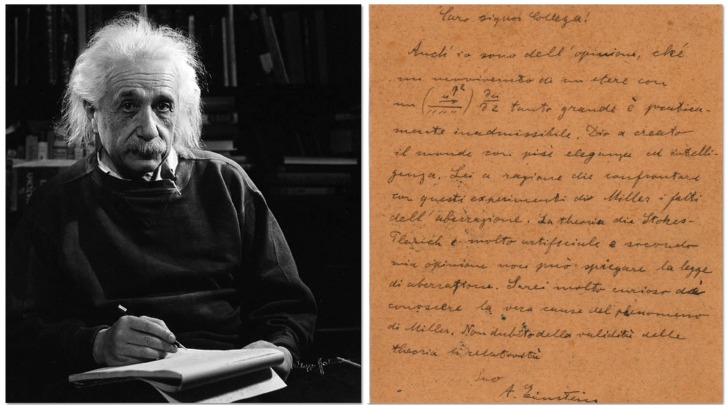 Caro signor Collega!
Anch'io sono dell'opinione, ché
un movimento di un etere con
un tanto grande è pratica-
mente inadmissibile. Dio a creato
il mondo con più eleganza ed intelli-
genza. Lei a ragione di confrontare
con questi experimenti di Miller i fatti
dell'aberrazione. La theoria di Stokes-
è molto artificiale e secondo
mia opinione non può spiegare la legge
di aberrazione. Sarei molto curioso di
conoscere la vera cause del phenomeno
di Miller. Non dubito della validità delle
theoria di relatività
Suo
A. Einstein